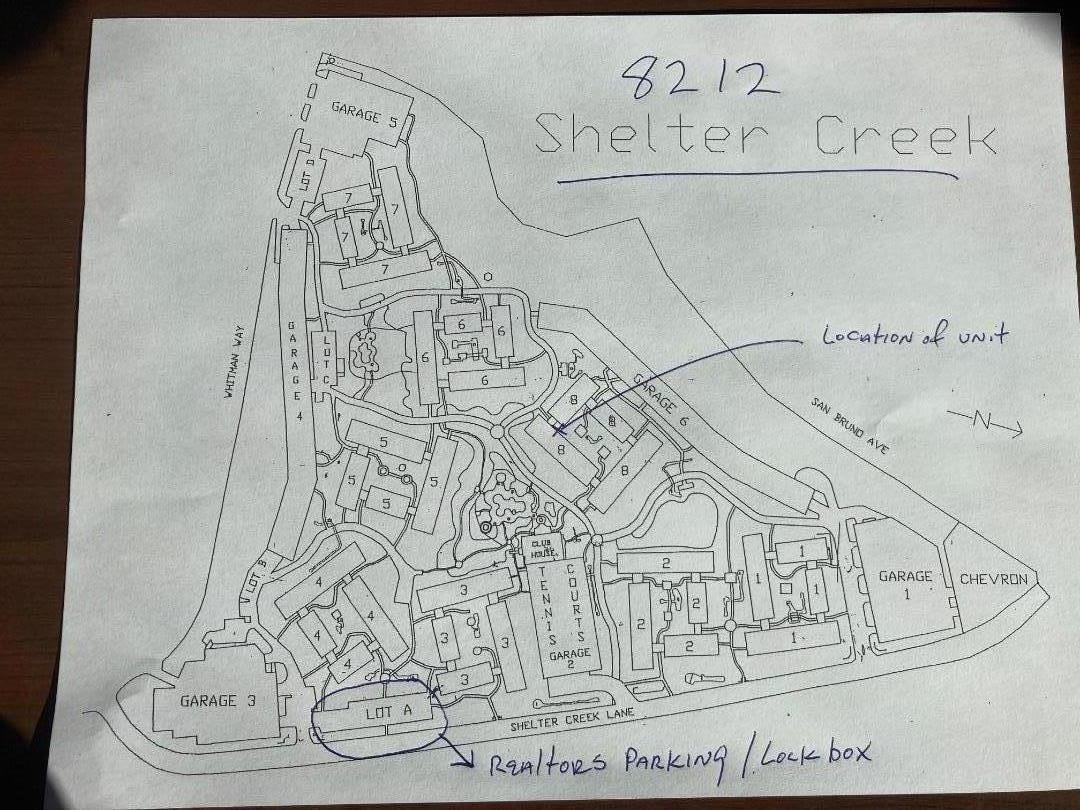 8212
Shelter Creek
GARAGE 5
LOT D
7
7
7
7
WHITMAN WAY
GARAGE 4
LOT C
6
6
6
6
Location of unit
GARAGE 6
SAN BRUNO AVE
N
8
8
8
8
5
5
5
5
CLUB
HOUSE
TENNIS
COURTS
GARAGE
2
LOT B
4
4
4
4
3
3
3
3
2
2
2
2
1
1
1
1
GARAGE
1
CHEVRON
GARAGE 3
LOT A
SHELTER CREEK LANE
REAltORS PARKING / Lock box